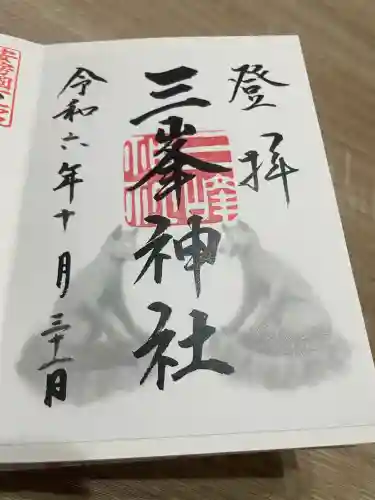 登拝
三峯神社
令和六年十月三十一日